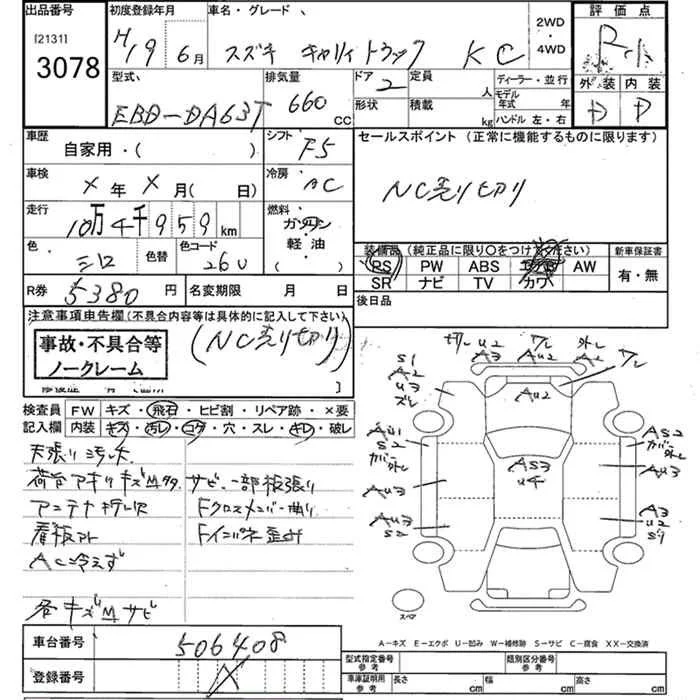 出品番号 初度登録年月 車名・グレード 2WD・4WD 評価点
[2131] 3078 H19 6月 スズキ キャリィトラック KC R小
型式 排気量 ドア 定員 ディーラー・並行 外装 内装
EBD-DA63T 660 cc 2 人 モデル年式 年 D D
形状 積載 kg ハンドル 左・右
車歴 シフト セールスポイント (正常に機能するものに限ります)
自家用・( ) F5
車検 冷房 NC売り切り
X年 X月(日) AC
走行 燃料
10万4千959km ガソリン
色 色替 色コード 軽油 装備品 (純正品に限り○をつけてください) 新車保証書
シロ 26U ( ) PS PW ABS AW 有・無
SR ナビ TV カワ
R券 5380円 名変期限 月 日 後日品
注意事項申告欄(不具合内容等は具体的に記入して下さい)
事故・不具合等 (NC売り切り)
ノークレーム
検査員 FW キズ・飛石・ヒビ割・リペア跡・×要
記入欄 内装 キズ・汚レ・コゲ・穴・スレ・キレ・破レ
天張り汚レ大
荷台アオリキズ凹タタ サビ、一部板張り
アンテナ Fクロスメンバー曲り
看板アト Fインパネ歪み
AC冷えず
各キズ凹サビ
切レU2 A3
ワレ AU2
外レ A2
ワレ
S1 A2 U3 ズレ
AU2
AU1 S2 カバー外レ
AS3 U4
AS2 カバー外レ
AU3
AU3
AU3 S2
A3 U2 S1
スペア
A-キズ E-エクボ U-凹み W-補修跡 S-サビ C-腐食 XX-交換済
車台番号 506408
登録番号 X
型式指定番号 参考 類別区分番号 参考
車庫証明用 参考 長さ cm 幅 cm 高さ cm